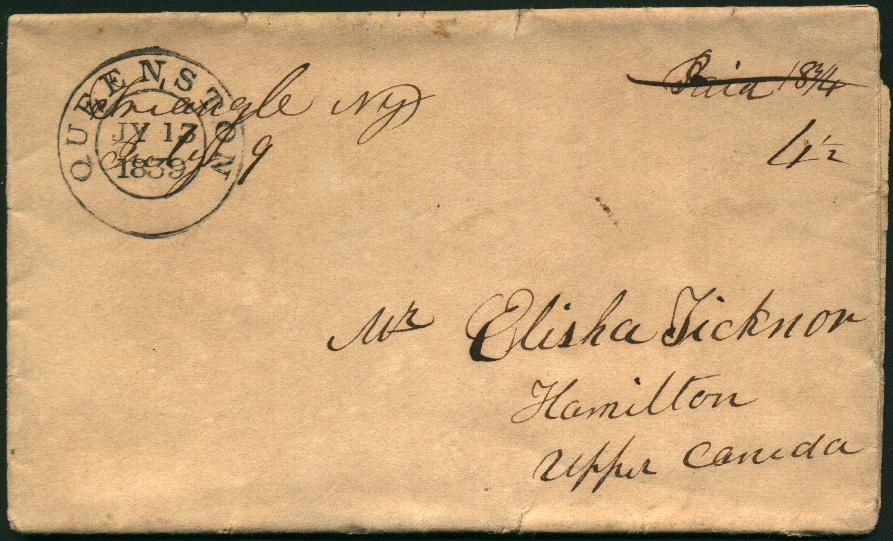 QUEENSTON
JY 13
1839
Triangle Ny
July 9
Paid 18 3/4
4 1/2
Mr Elisha Ticknor
Hamilton
Upper Canada